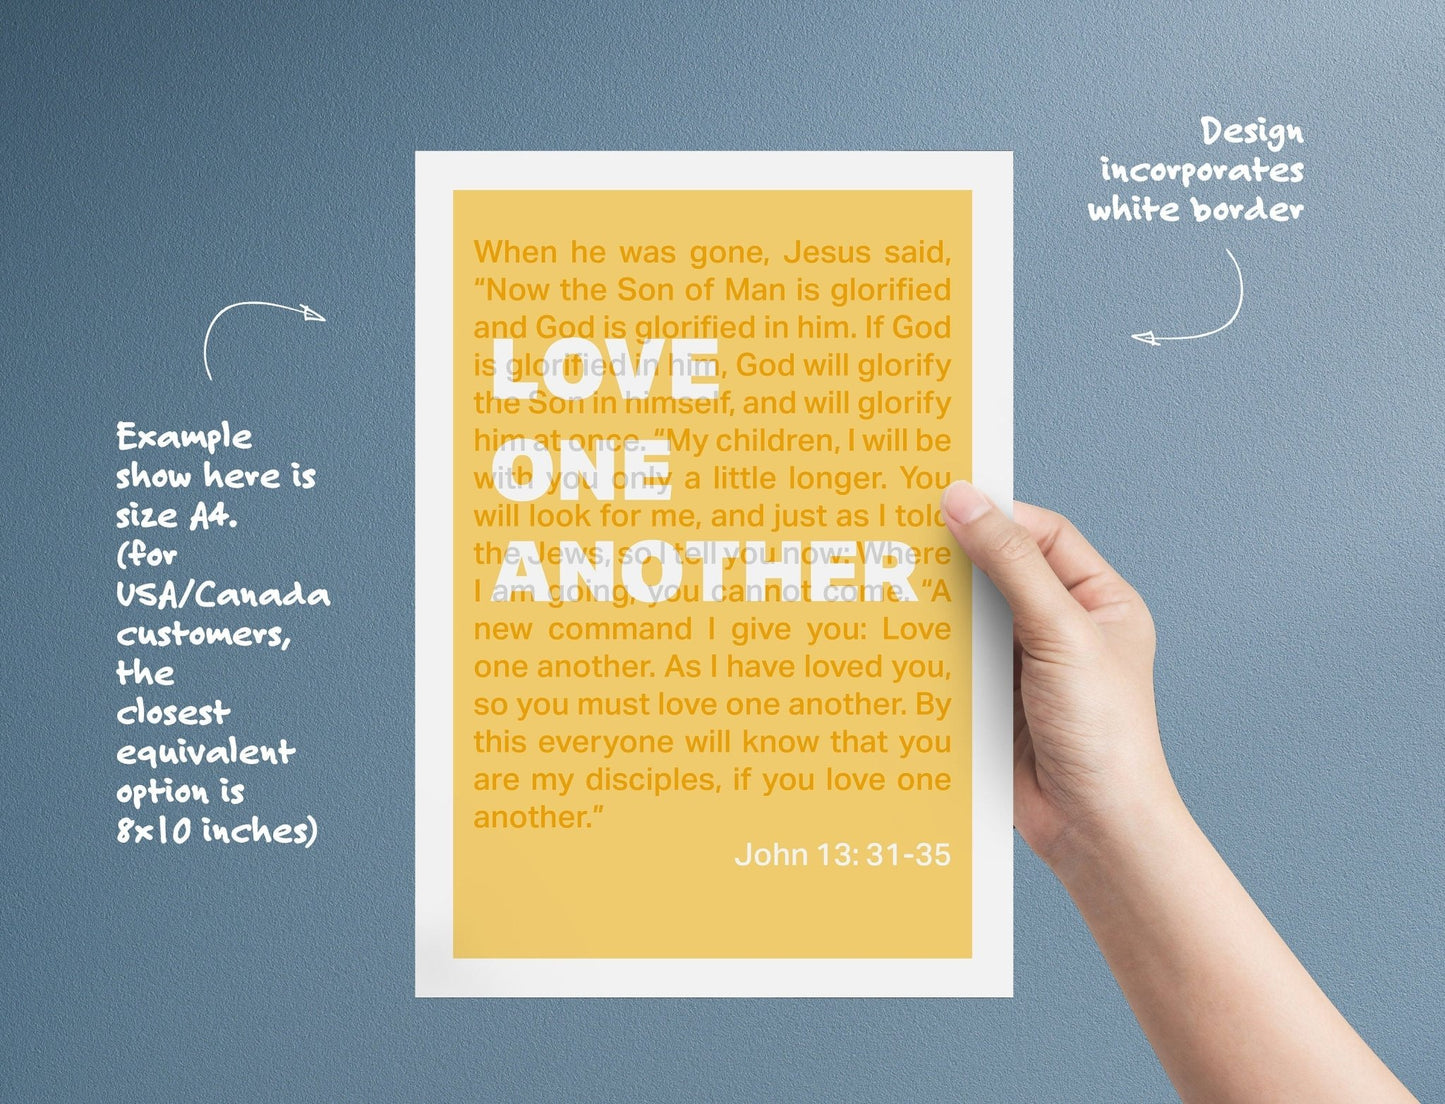 Design
incorporates
white border
Example
show here is
size A4.
(for
USA/Canada
customers,
the
closest
equivalent
option is
8x10 inches)
When he was gone, Jesus said,
“Now the Son of Man is glorified
and God is glorified in him. If God
is glorified in him, God will glorify
the Son in himself, and will glorify
him at once. “My children, I will be
with you only a little longer. You
will look for me, and just as I told
the Jews, so I tell you now: Where
I am going, you cannot come. “A
new command I give you: Love
one another. As I have loved you,
so you must love one another. By
this everyone will know that you
are my disciples, if you love one
another.”
John 13: 31-35
LOVE
ONE
ANOTHER